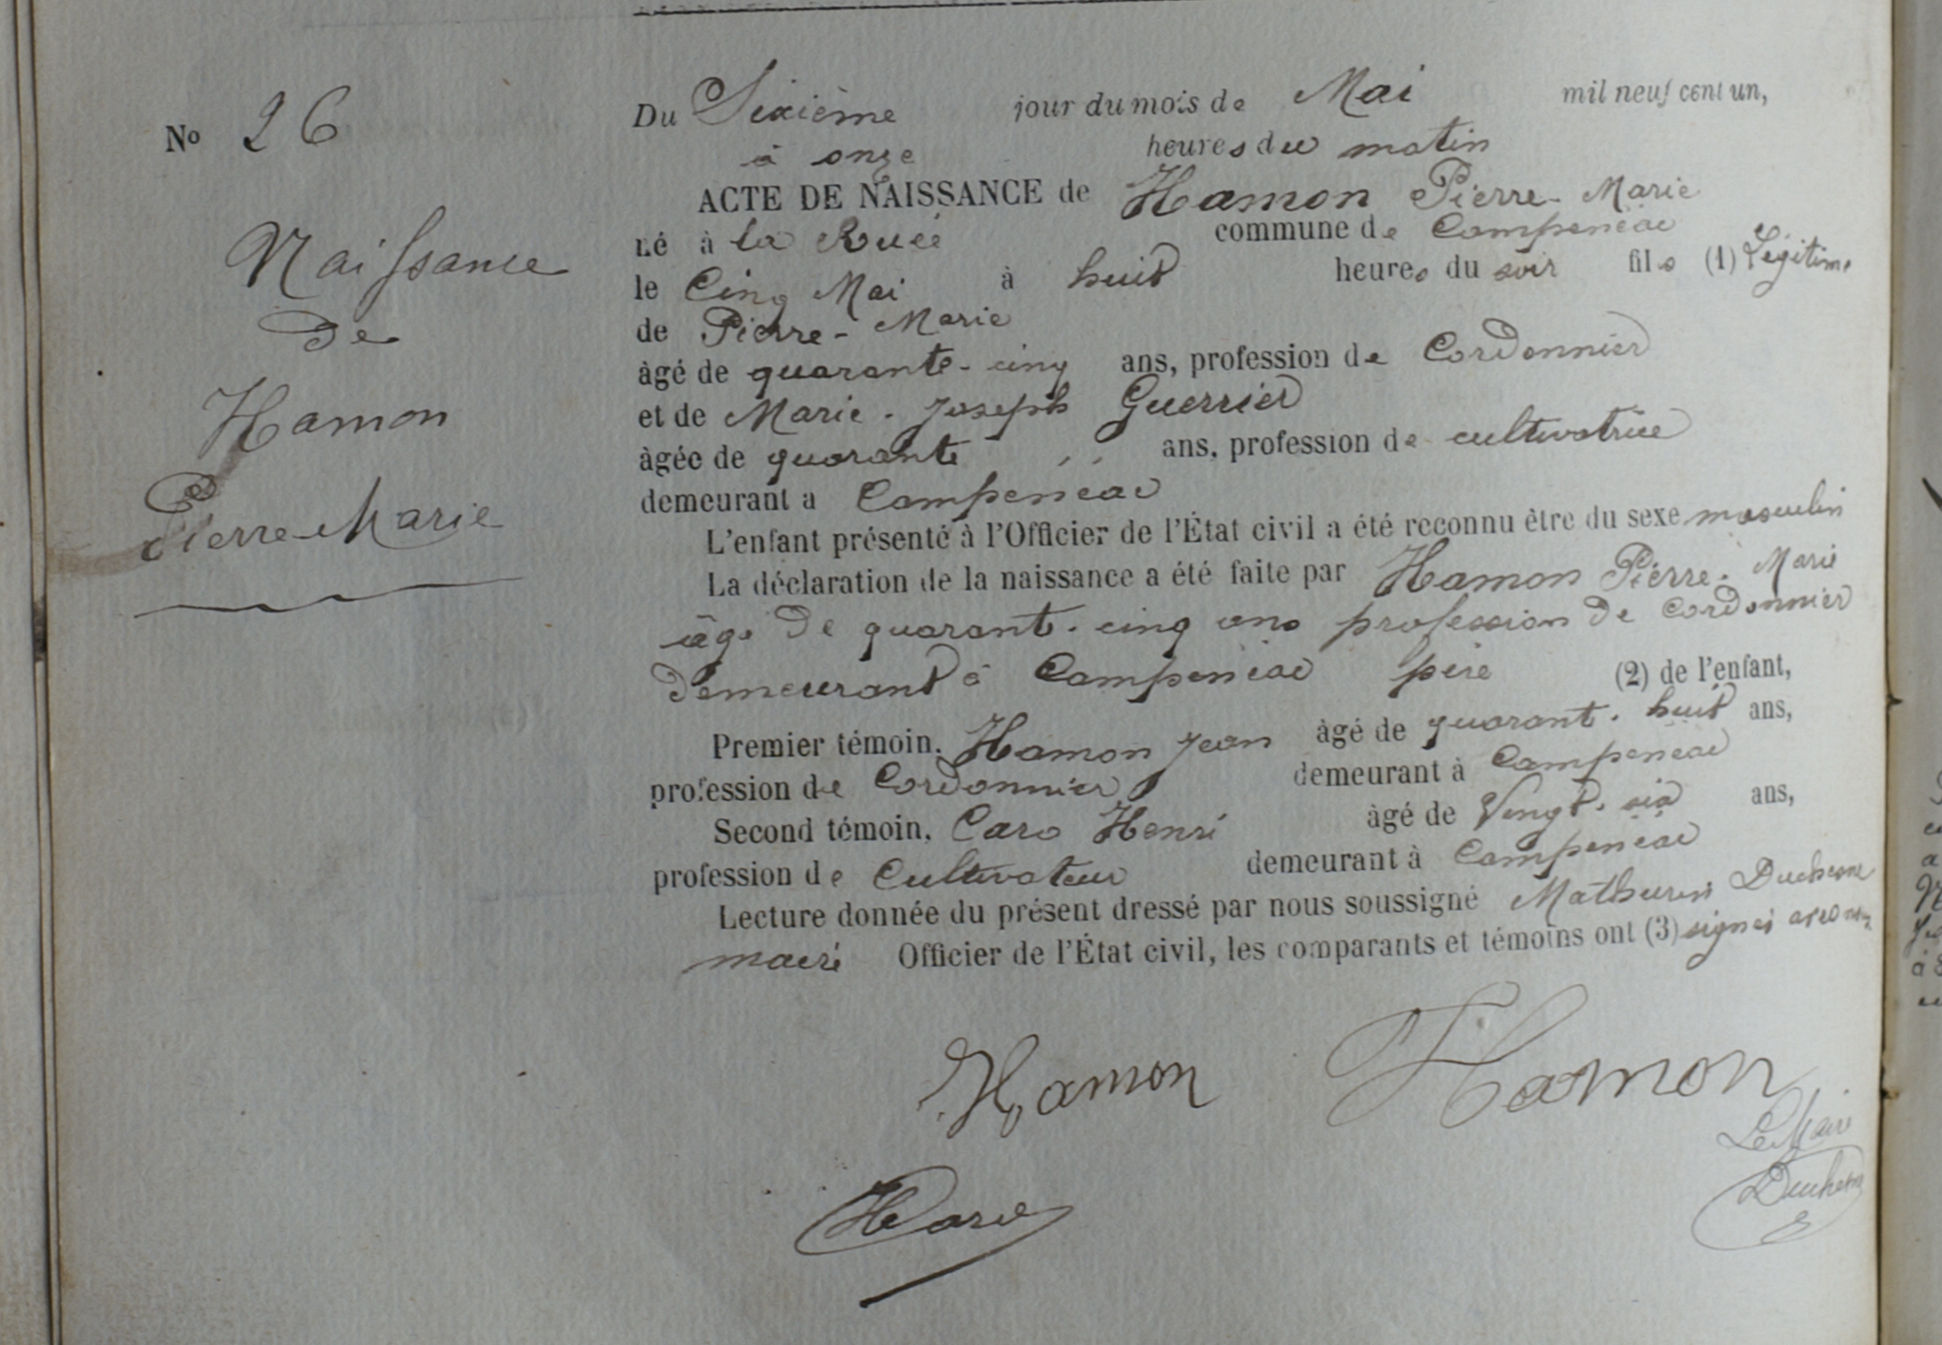 No 26
Naissance
de
Hamon
Pierre-Marie
Du Sixième jour du mois de Mai mil neuf cent un,
à onze heures du matin
ACTE DE NAISSANCE de Hamon Pierre-Marie
né à la Ruée commune de Campénéac
le Cinq Mai à huit heures du soir fils (1) Légitime
de Pierre-Marie
àgé de quarante-cinq ans, profession de Cordonnier
et de Marie-Joseph Guerrier
àgée de quarante ,, ans, profession de cultivatrice
demeurant a Campénéac
L'enfant présenté à l'Officier de l'État civil a été reconnu être du sexe masculin
La déclaration de la naissance a été faite par Hamon Pierre-Marie
âgé de quarante-cinq ans profession de Cordonnier
demeurant à Campénéac père (2) de l'enfant,
Premier témoin, Hamon Jean àgé de quarante-huit ans,
profession de Cordonnier demeurant à Campénéac
Second témoin, Caro Henri àgé de Vingt-six ans,
profession de Cultivateur demeurant à Campénéac
Lecture donnée du présent dressé par nous soussigné Mathurin Duchesne
maire Officier de l'État civil, les comparants et témoins ont (3) signés avec nous
Hamon Hamon
Le Maire
HCaro Duchesne